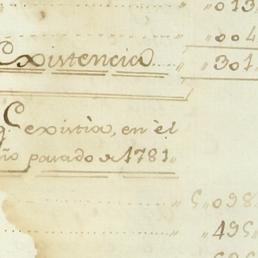 "013
"004
Existencia "301
q. existia, en èl
ño pasado de 1781"
5"098
"495